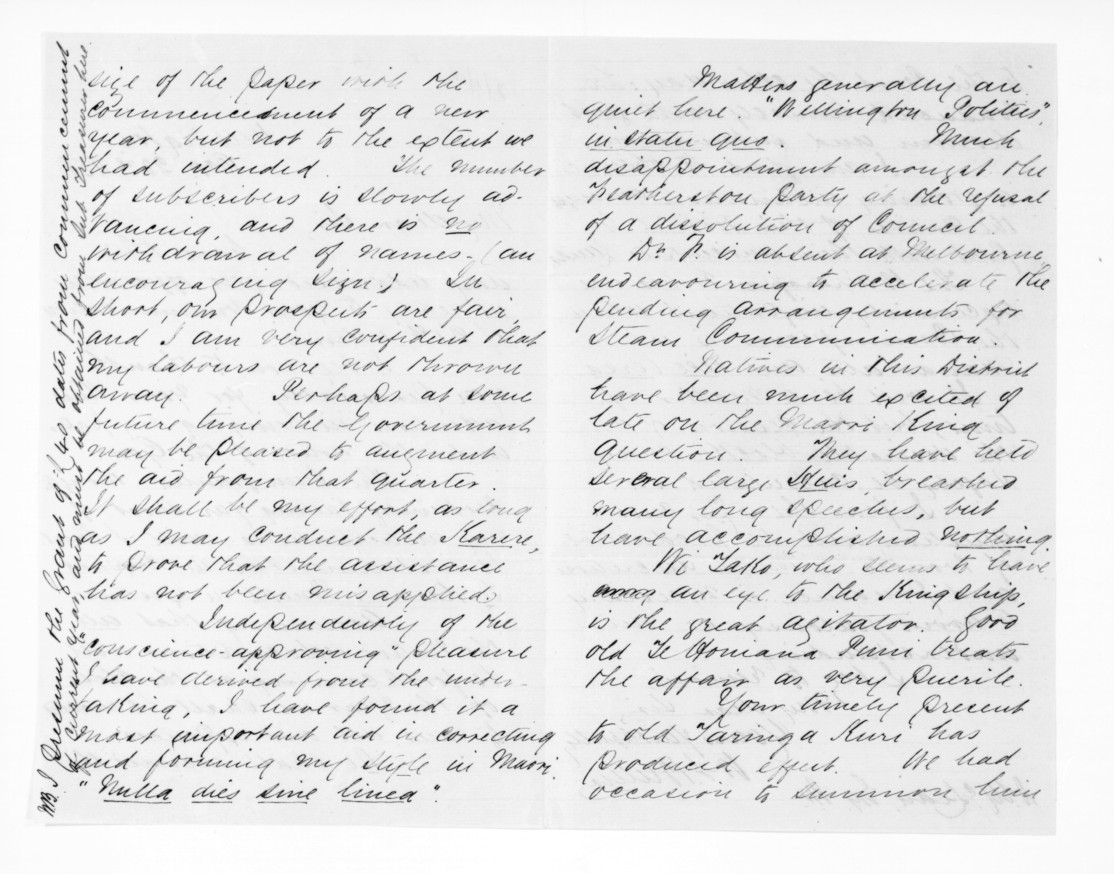 size of the paper with the
commencement of a new
year, but not to the extent we
had intended. The number
of subscribers is slowly ad-
vancing, and there is no
withdrawal of names - (an
encouraging sign.) In
short, our prospects are fair,
and I am very confident that
my labours are not thrown
away. Perhaps at some
future time the Government
may be pleased to augment
the aid from that quarter.
It shall be my effort, as long
as I may conduct the Karere,
to prove that the assistance
has not been misapplied.
Independently of the
"conscience-approving" pleasure
I have derived from the under-
taking, I have found it a
most important aid in correcting
and forming my style in Maori.
"Nulla dies sine linea".
NB. I presume the Grant of £40 dates from commencement
of current year, and must be obtained from Sub Treasurer here.
Matters generally are
quiet here. "Wellington Politics",
in statu quo. Much
disappointment amongst the
Featherston party at the refusal
of a dissolution of Council
Dr. F. is absent at Melbourne,
endeavouring to accelerate the
pending arrangements for
Steam Communication.
Natives in this District
have been much excited of
late on the Maori King
question. They have held
several large Huis, breathed
many long speeches, but
have accomplished nothing.
Wi Tako, who seems to have
an eye to the Kingship,
is the great agitator. Good
old Te Honiana Puni treats
the affair as very puerile.
Your timely present
to old Taringa Kuri has
produced effect. We had
occasion to summon him